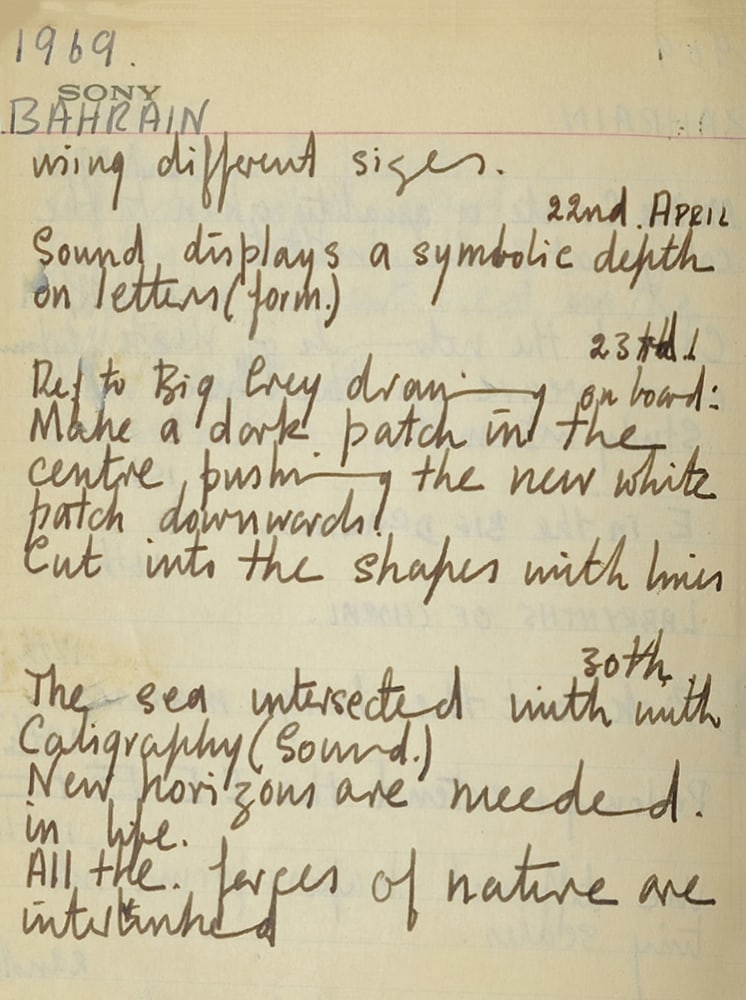 1969.
SONY
BAHRAIN
using different sizes.
22nd. APRIL
Sound displays a symbolic depth
on letters (form.)
23rd.
Ref to Big Grey drawing on board:
Make a dark patch in the
centre, pushing the new white
patch downwards!
Cut into the shapes with lines
30th.
The sea intersected with with
Caligraphy (Sound.)
New horizons are needed.
in life.
All the. forces of nature are
interlinked